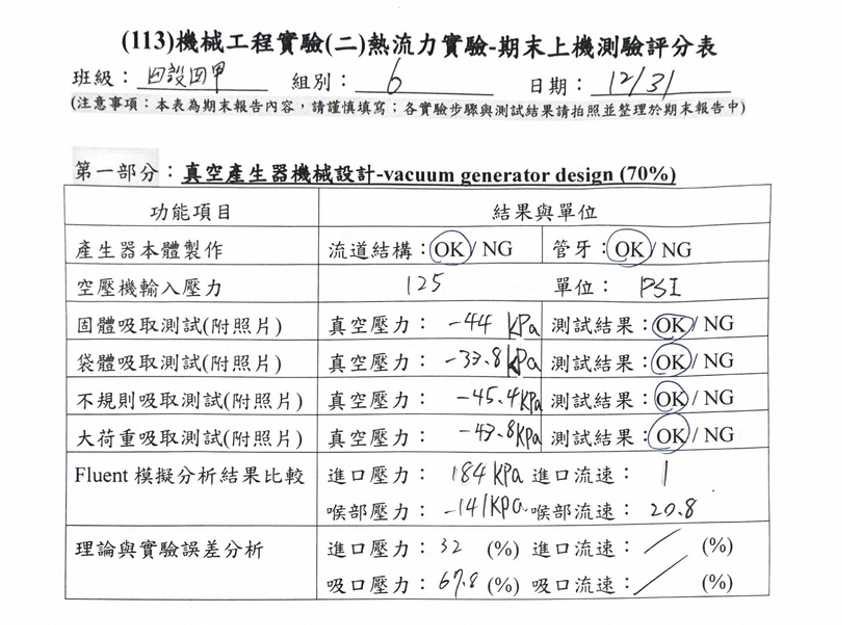 (113)機械工程實驗(二)熱流力實驗-期末上機測驗評分表
班級：四設四甲 組別：6 日期：12/31
(注意事項：本表為期末報告內容，請謹慎填寫；各實驗步驟與測試結果請拍照並整理於期末報告中)
第一部分：真空產生器機械設計-vacuum generator design (70%)
功能項目 結果與單位
產生器本體製作 流道結構：OK/ NG 管牙：OK/ NG
空壓機輸入壓力 125 單位： PSI
固體吸取測試(附照片) 真空壓力： -44 kPa 測試結果：OK/ NG
袋體吸取測試(附照片) 真空壓力： -33.8kPa 測試結果：OK/ NG
不規則吸取測試(附照片) 真空壓力： -45.4kPa 測試結果：OK/ NG
大荷重吸取測試(附照片) 真空壓力： -43.8KPa 測試結果：OK/ NG
Fluent 模擬分析結果比較 進口壓力： 184 KPa 進口流速： 1
喉部壓力： -141KPa 喉部流速： 20.8
理論與實驗誤差分析 進口壓力：32 (%) 進口流速：／ (%)
吸口壓力：67.8 (%) 吸口流速：／ (%)